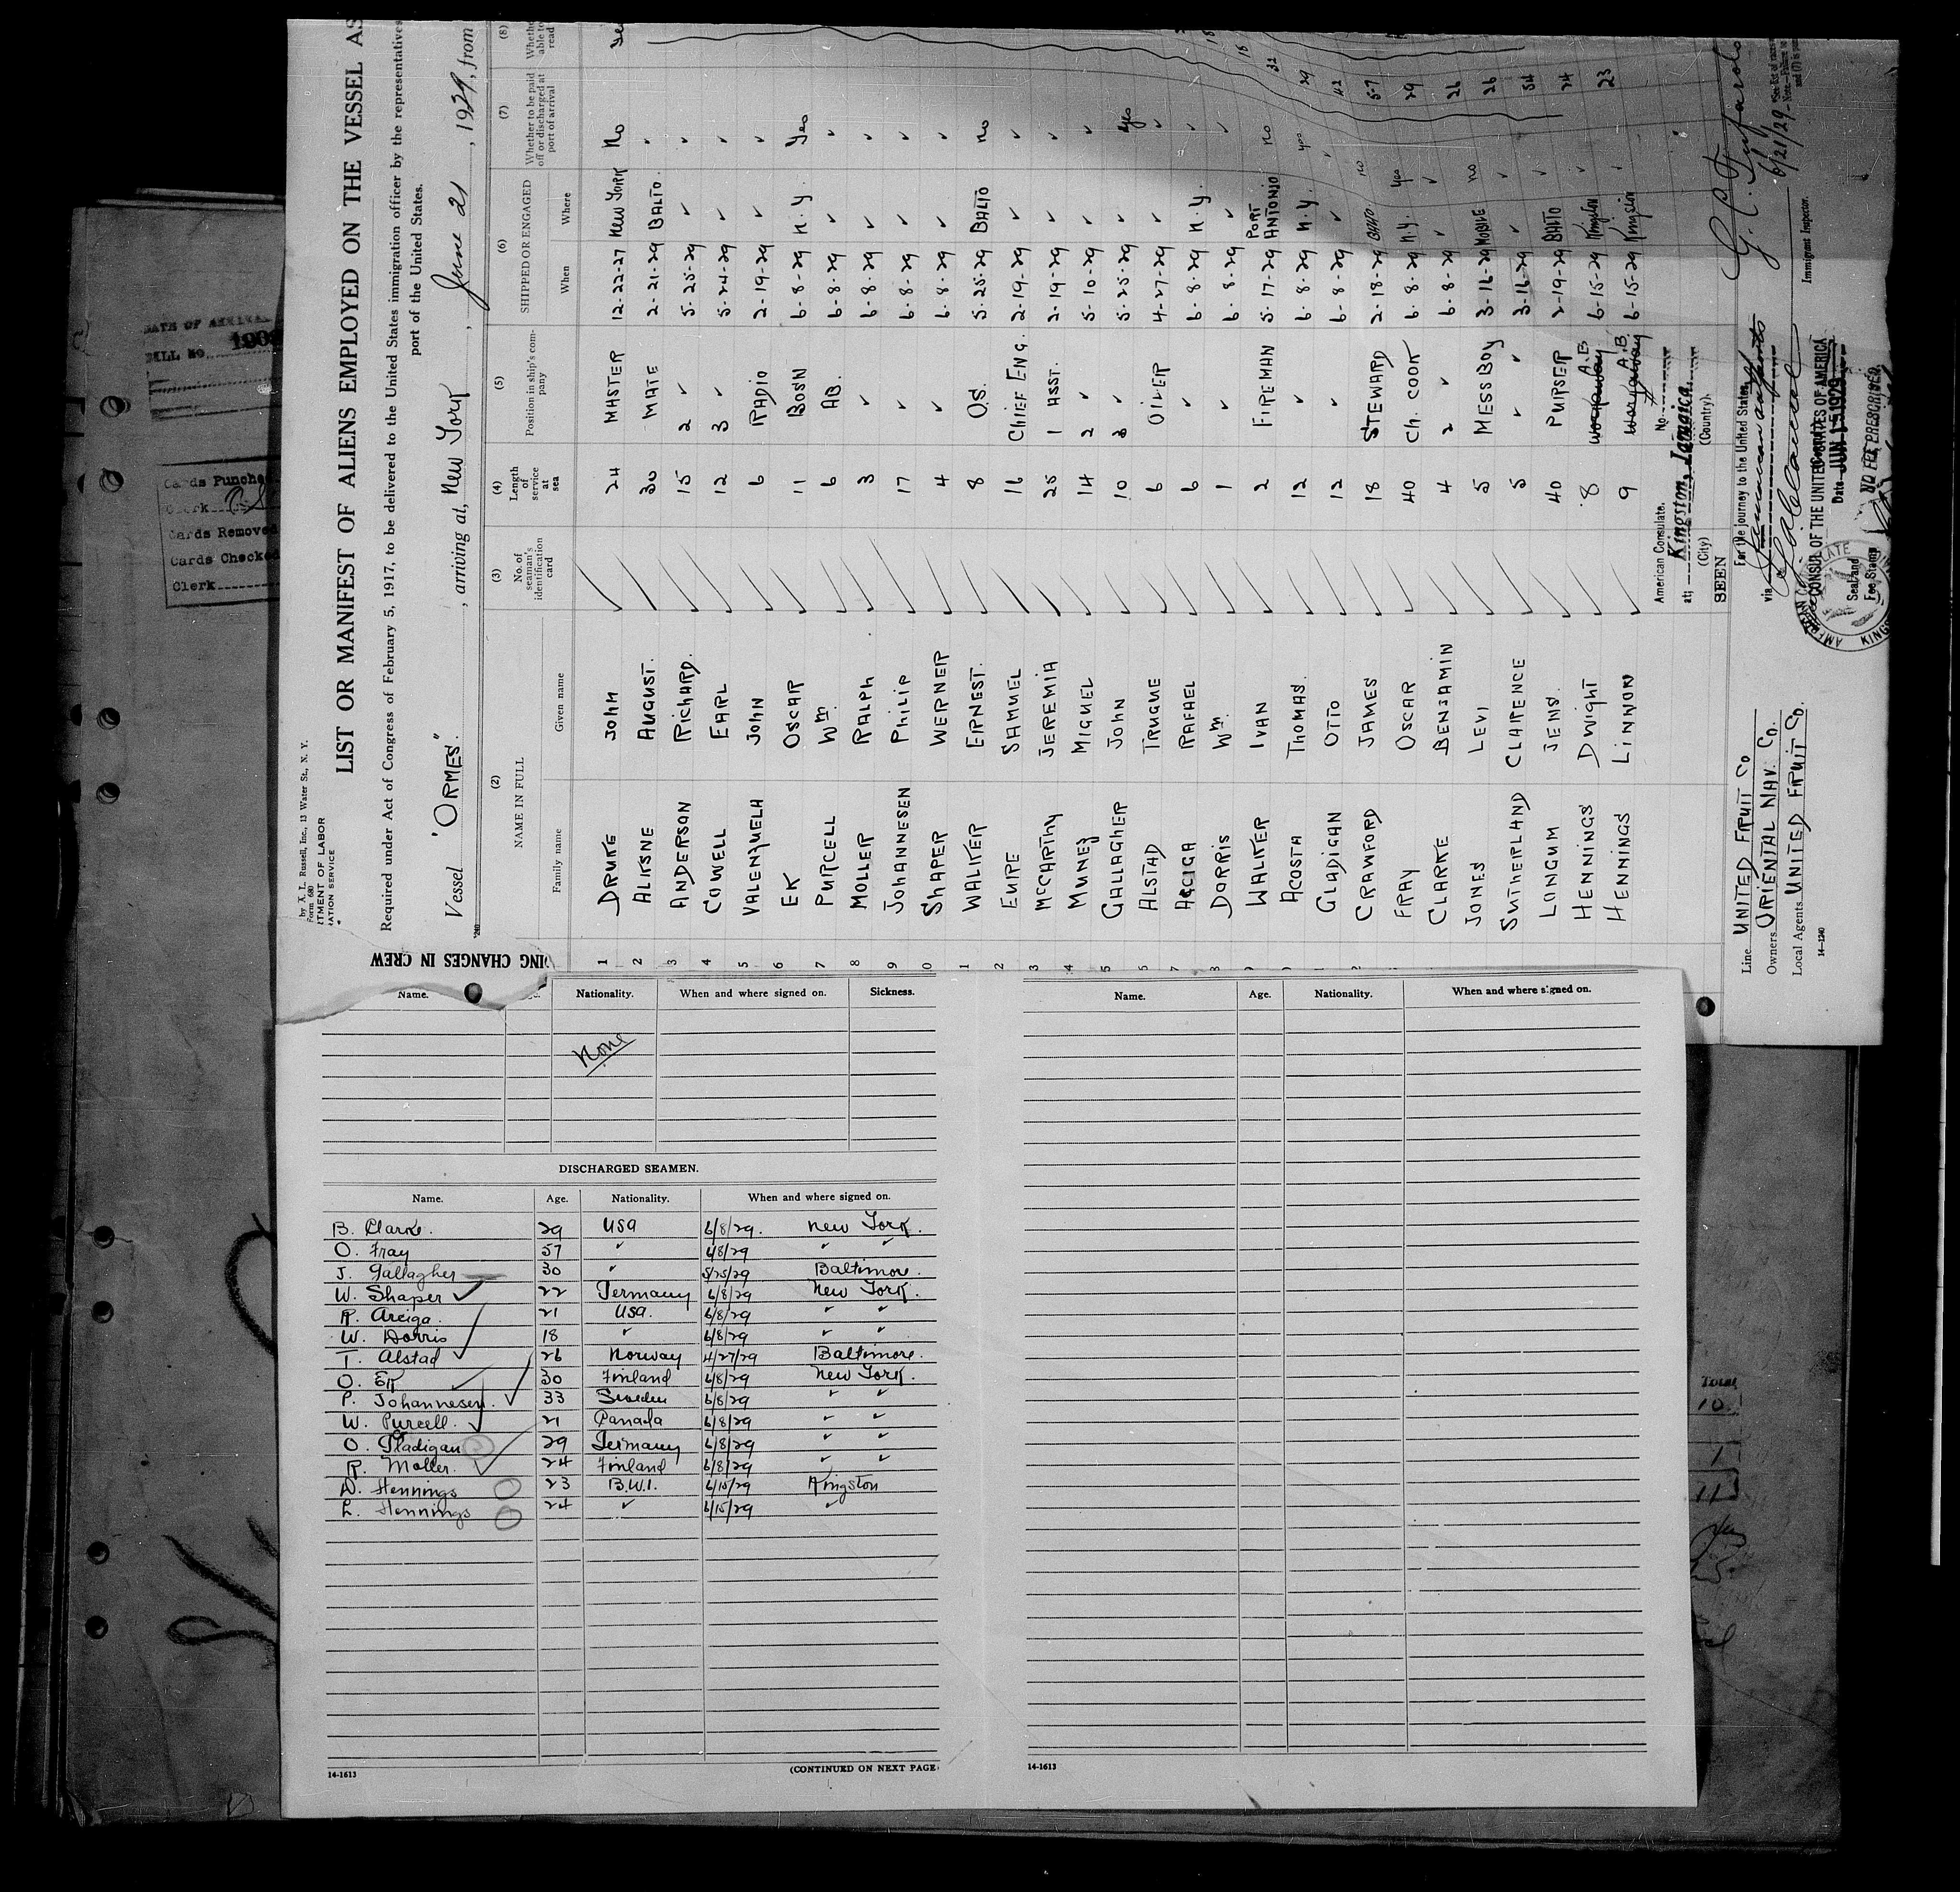 by X. L. Russell, Inc., 13 Water St., N. Y.
Form 680
TMENT OF LABOR
ATION SERVICE
LIST OR MANIFEST OF ALIENS EMPLOYED ON THE VESSEL AS
Required under Act of Congress of February 5, 1917, to be delivered to the United States immigration officer by the representatives
port of the United States.
Vessel "ORMES", arriving at, New York, June 21, 1929, from
(2) (3) (4) (5) (6) (7) (8)
NAME IN FULL
Family name Given name
No. of seaman's identification card
Length of service at sea
Position in ship's company
SHIPPED OR ENGAGED
When Where
Whether to be paid off or discharged at port of arrival
Whether able to read
1 DRUKE JOHN 24 MASTER 12-22-27 NEW YORK No Yes
2 ALKSNE AUGUST. 30 MATE 2-21-29 BALTO. ✓
3 ANDERSON RICHARD. 15 2 ✓ 5-25-29 ✓ ✓
4 COWELL EARL 12 3 ✓ 5-24-29 ✓ ✓
5 VALENZUELA JOHN 6 RADIO 2-19-29 ✓ ✓
6 EK OSCAR 11 BOSN 6-8-29 N.Y. Yes
7 PURCELL Wm. 6 AB. 6-8-29 ✓ ✓
8 MOLLER RALPH 3 ✓ 6-8-29 ✓ ✓
9 JOHANNESEN PHILIP 17 ✓ 6-8-29 ✓ ✓
0 SHAPER WERNER 4 ✓ 6-8-29 ✓ ✓
1 WALKER ERNEST. 8 O.S. 5-25-29 BALTO no
2 EUIPE SAMUEL 16 CHIEF ENG. 2-19-29 ✓ ✓
3 McCARTHY JEREMIA 25 1 ASST. 2-19-29 ✓ ✓
4 MUNEZ MIGUEL 14 2 ✓ 5-10-29 ✓ ✓
5 GALLAGHER JOHN 10 3 ✓ 5-25-29 ✓ Yes
ALSTAD TRUGUE 6 OILER 4-27-29 ✓ ✓
7 ARCIGA RAFAEL 6 ✓ 6-8-29 N.Y. ✓
8 DORRIS Wm. 1 ✓ 6-8-29 ✓ ✓
WALKER IVAN 2 FIREMAN 5-17-29 PORT ANTONIO no 32
ACOSTA THOMAS. 12 ✓ 6-8-29 N.Y. yes 29
GLADIGAN OTTO 12 ✓ 6-8-29 ✓ ✓ 42
CRAWFORD JAMES 18 STEWARD 2-18-29 BALTO. no 57
FRAY OSCAR 40 CH. COOK 6-8-29 N.Y. Yes 29
CLARKE BENJAMIN 4 2 ✓ 6-8-29 ✓ ✓ 26
JONES LEVI 5 MESS BOY 3-16-29 MOBILE no 26
SUTHERLAND CLARENCE 5 ✓ 3-16-29 ✓ ✓ 54
LONGUM JENS. 40 PURSER 2-19-29 BALTO ✓ 24
HENNINGS DWIGHT 8 Workaway A.B. 6-15-29 Kingston ✓ 23
HENNINGS LINNON 9 Workaway A.B. 6-15-29 Kingston ✓
American Consulate.
at; Kingston, Jamaica No.
(City) (Country).
SEEN
For the journey to the United States,
via
CONSUL OF THE UNITED STATES OF AMERICA
Date JUN 15 1929
Seal and
Fee Stamp
NO FEE PRESCRIBED.
Line UNITED FRUIT CO
Owners ORIENTAL NAV. CO.
Local Agents UNITED FRUIT CO.
14-1240
6/21/29
Immigrant Inspector.
DATE OF ARRIVAL
BILL No.
Cards Punched
Clerk
Cards Removed
Cards Checked
Clerk
ING CHANGES IN CREW
Name. Nationality. When and where signed on. Sickness.
None
DISCHARGED SEAMEN.
Name. Age. Nationality. When and where signed on.
B. Clarke. 29 USA 6/8/29. New York.
O. Fray 57 ✓ 6/8/29 ✓ ✓
J. Gallagher 30 ✓ 5/25/29 Baltimore.
W. Shaper 22 Germany 6/8/29 New York.
R. Arciga. 21 USA. 6/8/29 ✓ ✓
W. Dorris 18 ✓ 6/8/29 ✓ ✓
T. Alstad 26 Norway 4/27/29 Baltimore.
O. EK 30 Finland 6/8/29 New York.
P. Johannesen. 33 Sweden 6/8/29 ✓ ✓
W. Purcell. 21 Canada 6/8/29 ✓ ✓
O. Gladigan 29 Germany 6/8/29 ✓ ✓
R. Moller. 24 Finland 6/8/29 ✓ ✓
D. Hennings 23 B.W.I. 6/15/29 Kingston
L. Hennings 24 ✓ 6/15/29 ✓
14-1613
(CONTINUED ON NEXT PAGE
Name. Age. Nationality. When and where signed on.
14-1613
Total
10
1
11